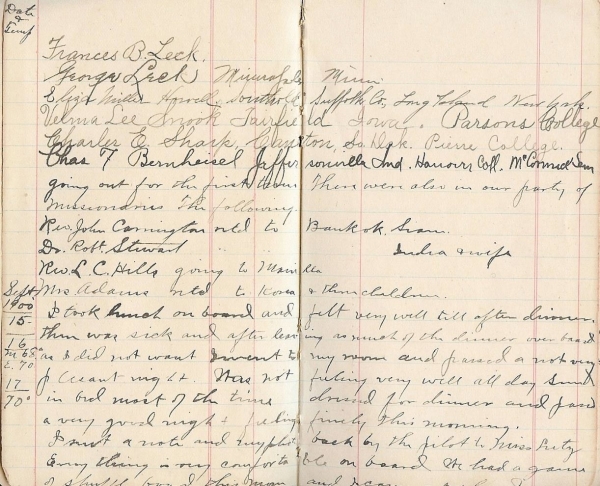 Date
&
Temp
Frances B. Leck.
George Leck Minneapolis Minn.
Eliza Miller Howell, Southold, Suffolk Co., Long Island New York.
Velma Lee Snook Fairfield Iowa. Parsons College
Charles E. Sharp, Canton, So. Dak. Pierre College.
Chas. F. Bernheisel Jeffersonville Ind. Hanover Coll. McCormick Sem
going out for the first time There were also in our party of
Missionaries the following.
Rev. John Carrington retd to Bankok. Siam.
Dr. Robt. Stewart " " India & wife
Rev. L. C. Hills going to Manilla
Mrs Adams retd to Korea & three children.
Sept.
1900
15- I took lunch on board and felt very well till after dinner.
then was sick and after leaving as much of the dinner over board
16
as I did not want I went to my room and passed a not very
pleasant night. Was not feeling very well all day Sund
17 in bed most of the time dressed for dinner and passed
70° a very good night & feeling finely this morning.
I sent a note and my photo back by the pilot to Miss
Every thing is very comfortable on board We had a game
of shuffle board this morn and